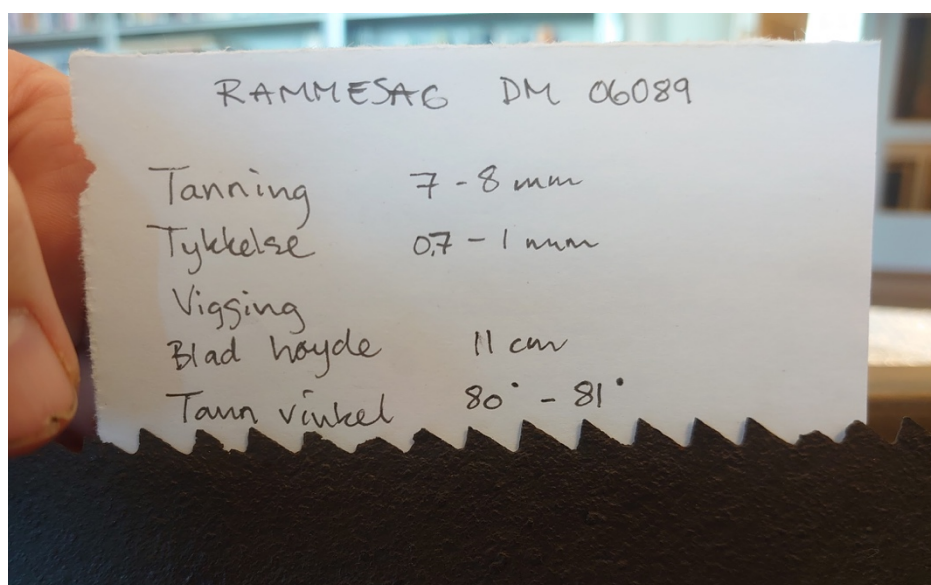 RAMMESAG DM 06089
Tanning 7 - 8 mm
Tykkelse 0,7 - 1 mm
Vigging
Blad høyde 11 cm
Tann vinkel 80° - 81°